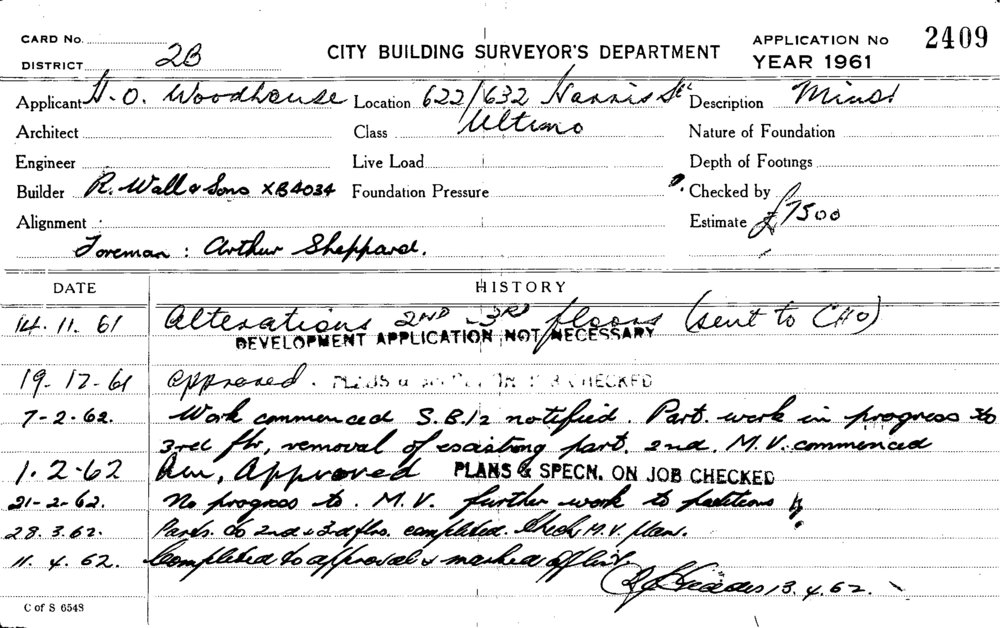 CARD No.
DISTRICT 2B
CITY BUILDING SURVEYOR'S DEPARTMENT
APPLICATION No 2409
YEAR 1961
Applicant H. O. Woodhouse Location 622/632 Harris St Description Minst
Architect Class Ultimo Nature of Foundation
Engineer Live Load Depth of Footings
Builder R. Wall & Sons XB4034 Foundation Pressure Checked by
Alignment Estimate £7500
Foreman : Arthur Sheppard.
DATE HISTORY
14.11.61 Alterations 2ND - 3RD floors (sent to CHO)
DEVELOPMENT APPLICATION NOT NECESSARY
19-12-61 Approved. PLANS & SPECN. ON JOB CHECKED
7-2-62. Work commenced S.B.12 notified. Part. work in progress to
3rd flr, removal of exsistong part. 2nd. M.V. commenced
1.2-62 Am, Approved PLANS & SPECN. ON JOB CHECKED
21-2-62. No progress to. M.V. further work to petitions
28.3.62. Parts. to 2nd & 3rd flrs. completed. Check M.V. Plant.
11.4.62. Completed to approval & marked off
13.4.62.
C of S 6548